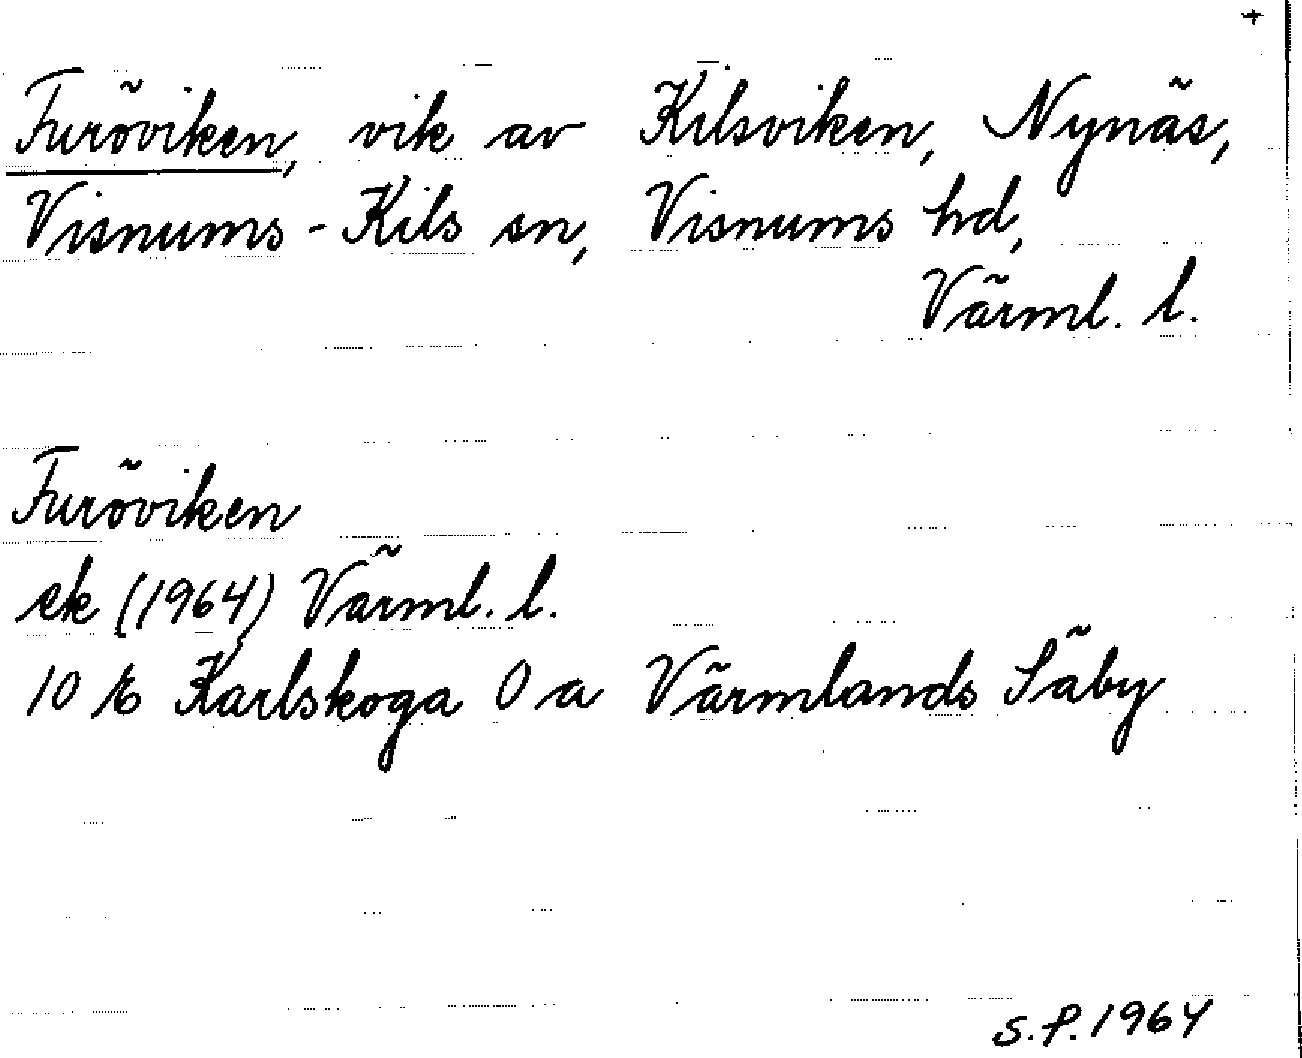 +
Furöviken, vik av Kilsviken, Nynäs,
Visnums-Kils sn, Visnums hd,
Värml. l.
Furöviken
ek (1964) Värml. l.
10 E Karlskoga 0 a Värmlands Säby
S.P. 1964